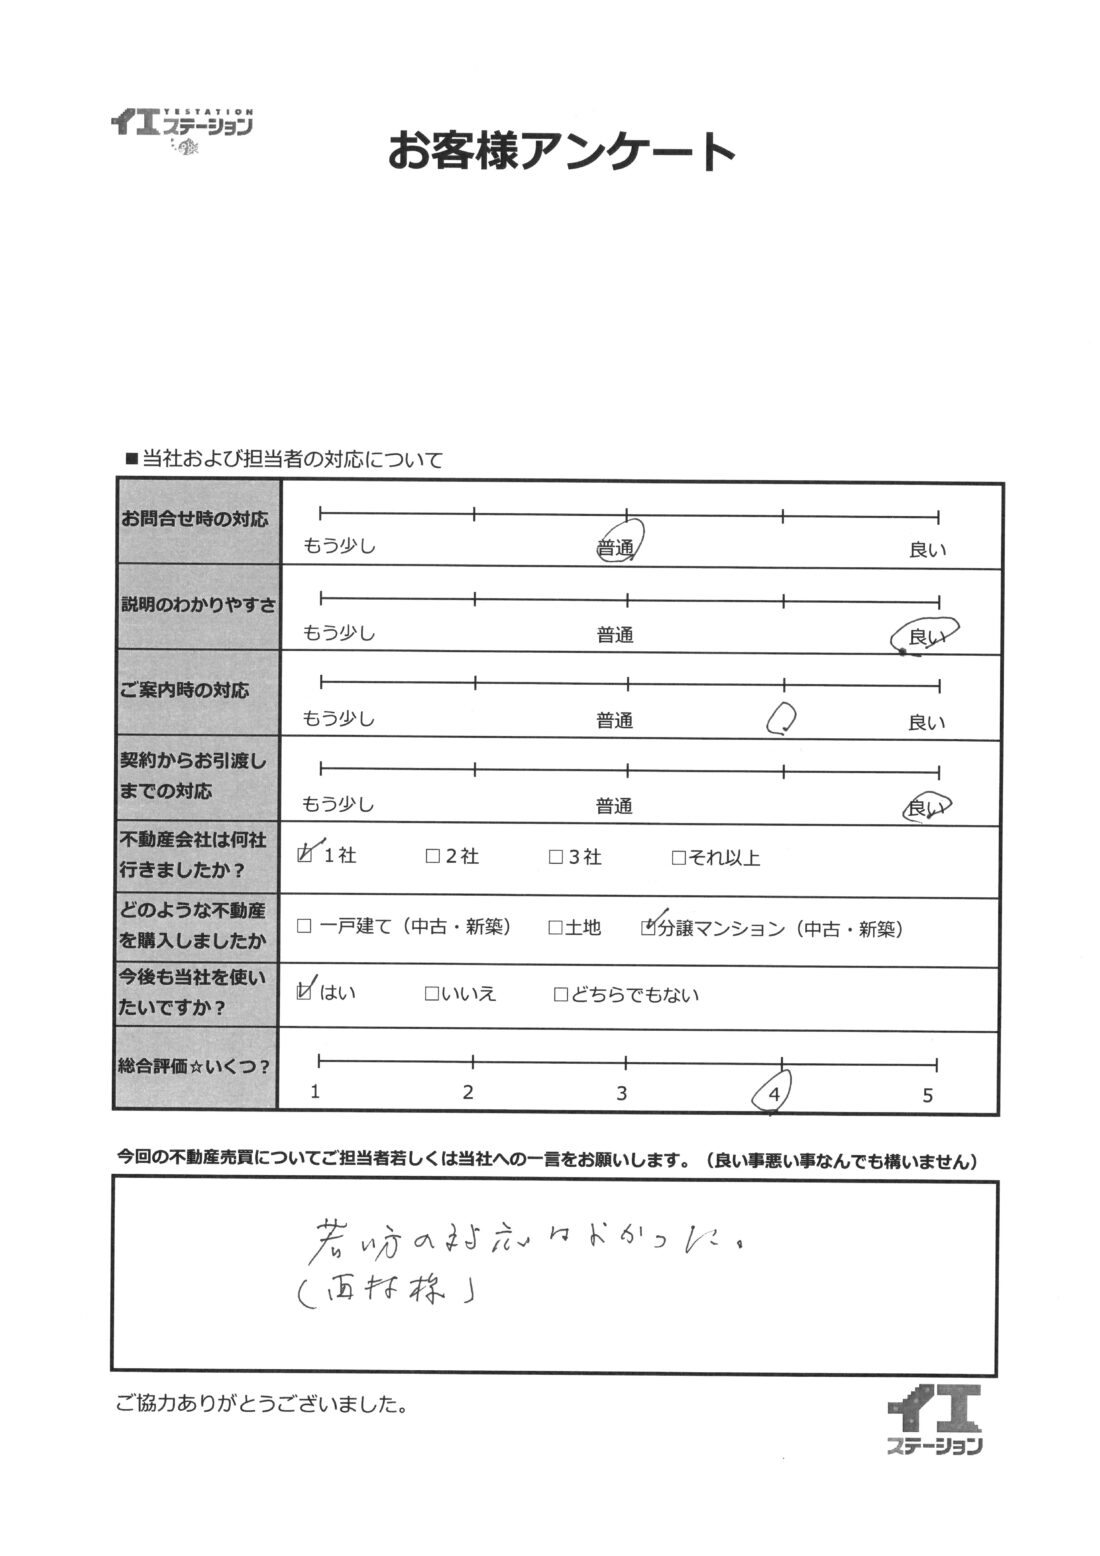 YESTATION
イエステーション
お客様アンケート
■当社および担当者の対応について
お問合せ時の対応
もう少し 普通 良い
説明のわかりやすさ
もう少し 普通 良い
ご案内時の対応
もう少し 普通 良い
契約からお引渡し
までの対応
もう少し 普通 良い
不動産会社は何社
行きましたか？
☑1社 □2社 □3社 □それ以上
どのような不動産
を購入しましたか
□ 一戸建て（中古・新築） □土地 ☑分譲マンション（中古・新築）
今後も当社を使い
たいですか？
☑はい □いいえ □どちらでもない
総合評価☆いくつ？
1 2 3 4 5
今回の不動産売買についてご担当者若しくは当社への一言をお願いします。（良い事悪い事なんでも構いません）
若い方の対応はよかった。
(西村様)
ご協力ありがとうございました。
イエ
ステーション